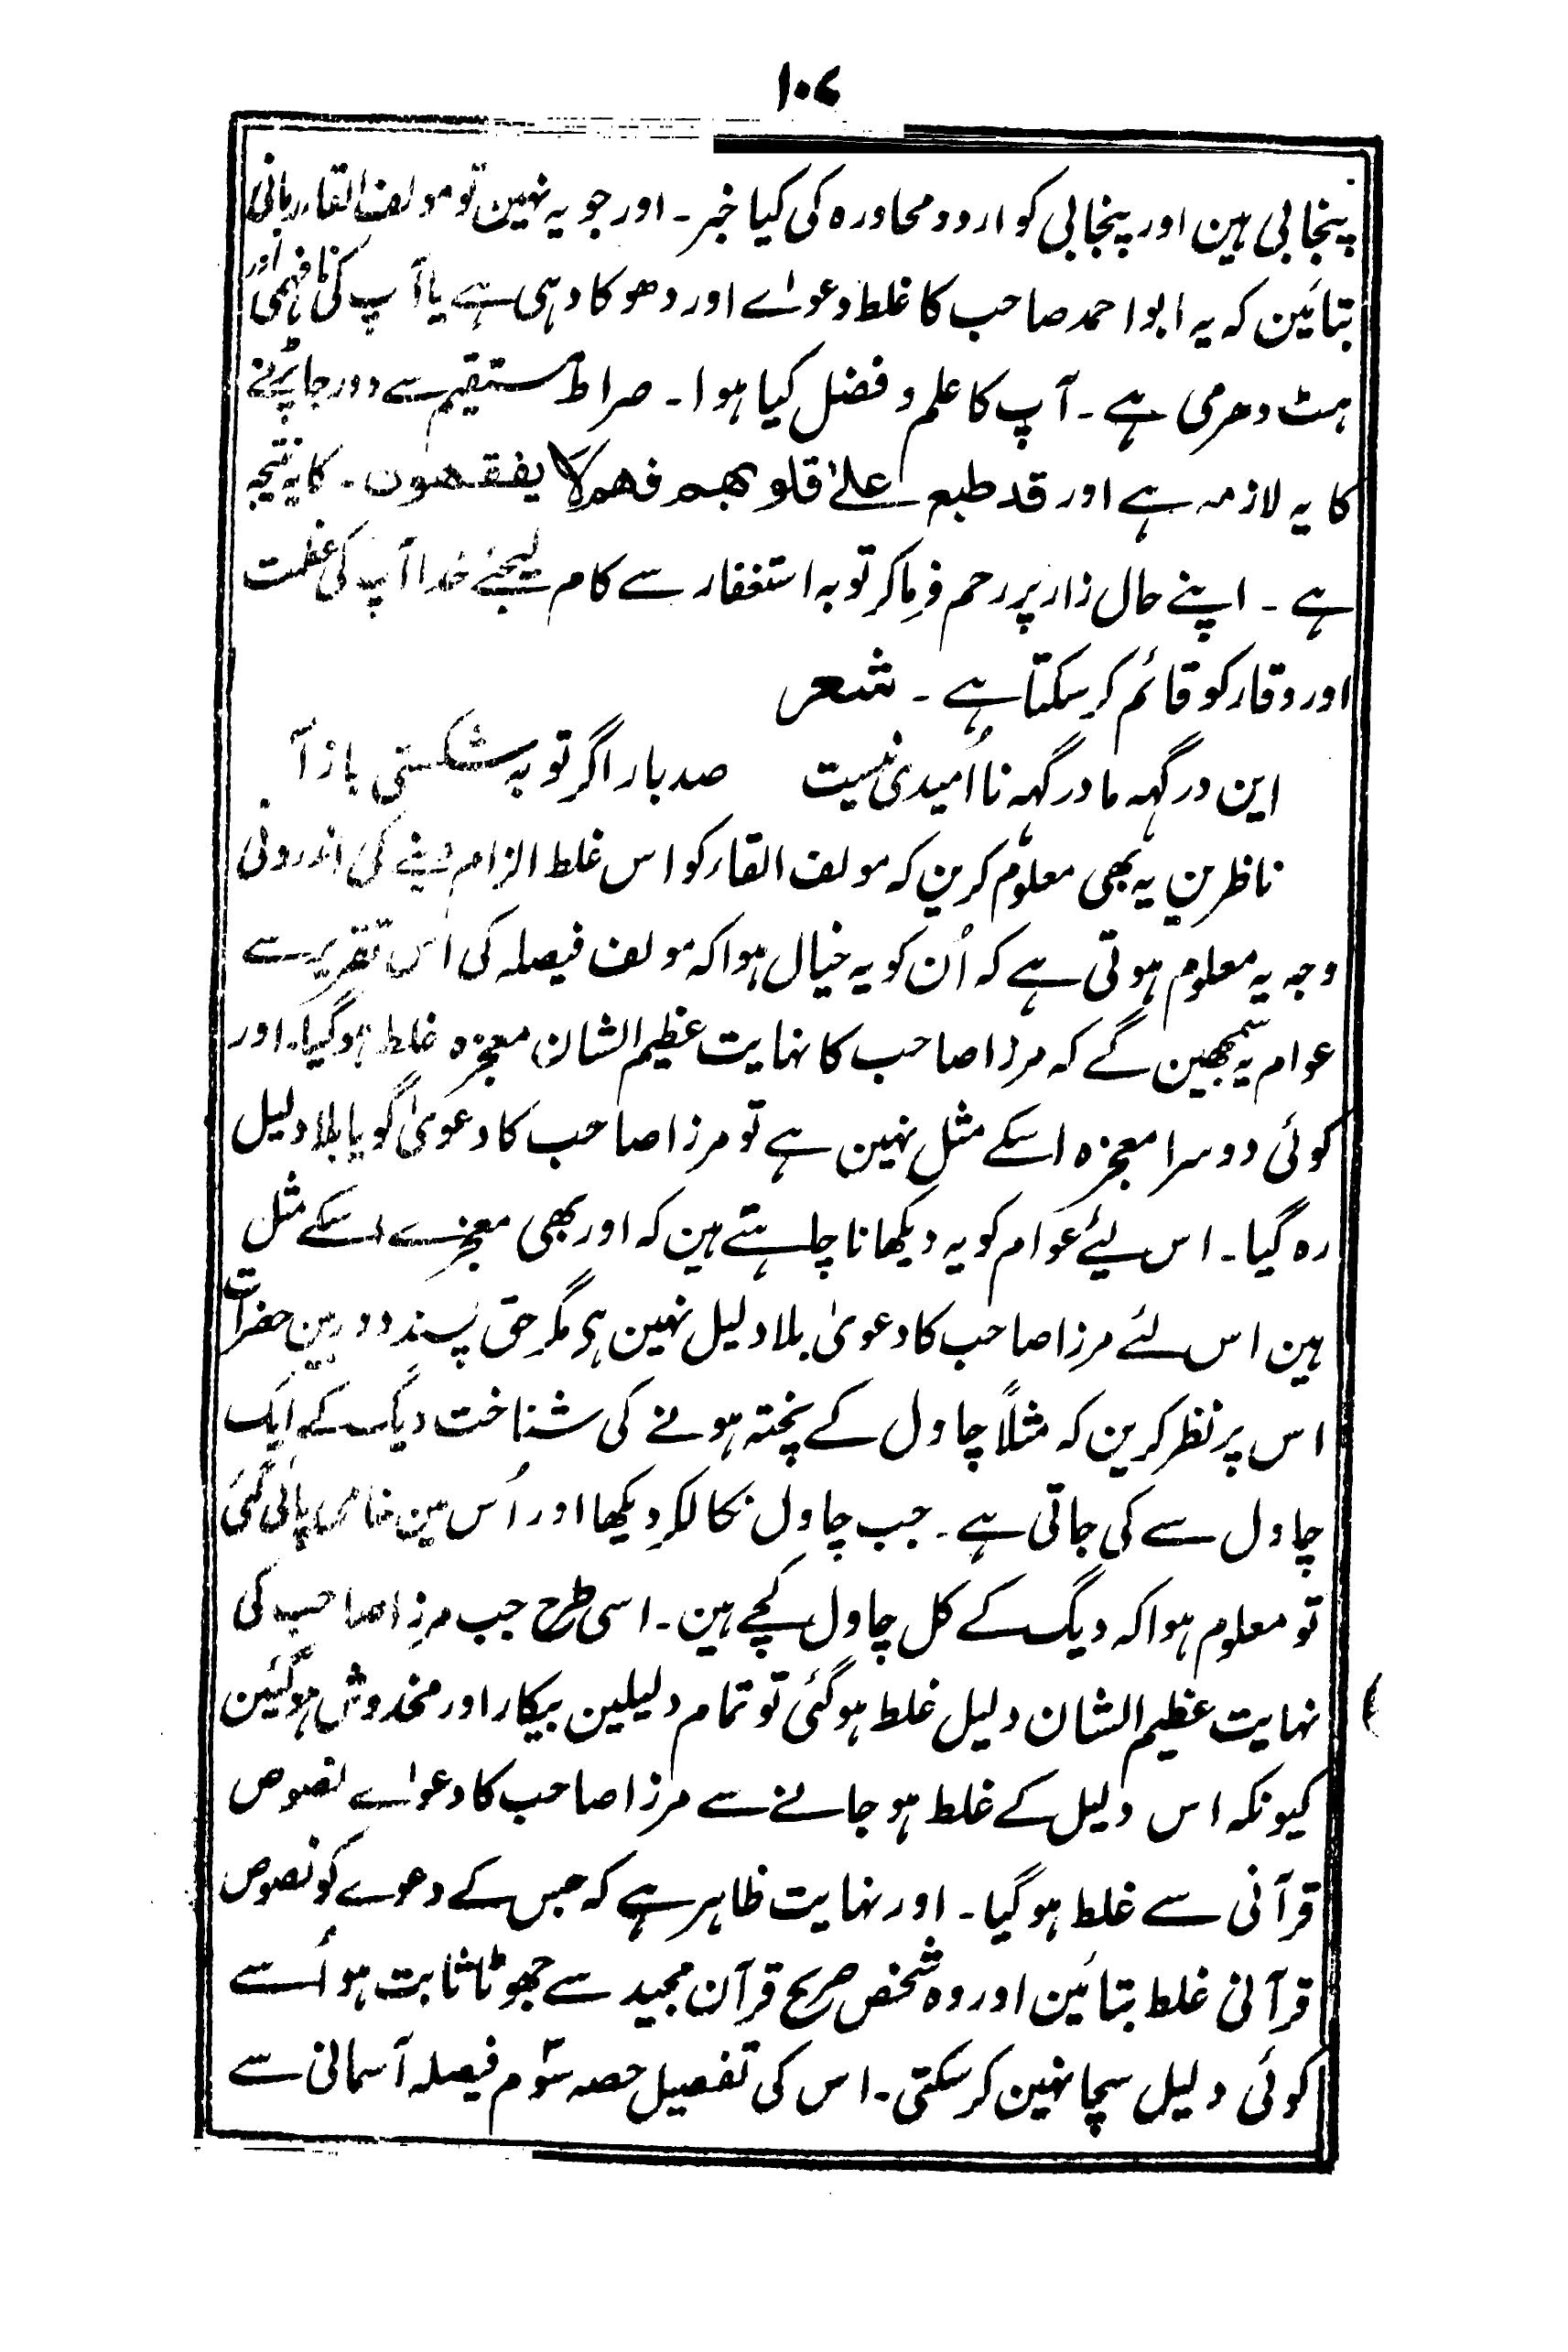 ۱۰۷
پنجابی ہین اور پنجابی کو اردو محاورہ کی کیا خبر۔ اور جو یہ نہین تو مولف القاء ربانی
بتائین کہ یہ ابو احمد صاحب کا غلط دعواے اور دھوکا دہی ہے یا آپ کی نافہمی اور
ہٹ دھرمی ہے۔ آپ کا علم و فضل کیا ہوا۔ صراط مستقیم سے دور جا پڑنے
کا یہ لازمہ ہے اور قد طبع علےٰ قلوبھم فھم لا یفقھون۔ کا یہ نتیجہ
ہے۔ اپنے حال زار پر رحم فرما کر توبہ استغفار سے کام لیجئے خدا آپ کی عظمت
اور وقار کو قائم کر سکتا ہے۔ شعر
این درگہہ ما درگہہ نا اُمیدی نیست صد بار اگر توبہ شکستی باز آ
ناظرین یہ بھی معلوم کرین کہ مولف القاء کو اس غلط الزام دینے کی اندرونی
وجہ یہ معلوم ہوتی ہے کہ اُن کو یہ خیال ہوا کہ مولف فیصلہ کی اس تقریر سے
عوام یہ سمجھین گے کہ مرزا صاحب کا نہایت عظیم الشان معجزہ غلط ہوگیا۔ اور
کوئی دوسرا معجزہ اسکے مثل نہین ہے تو مرزا صاحب کا دعویٰ گویا بلا دلیل
رہ گیا۔ اس لیے عوام کو یہ دیکھانا چاہتے ہین کہ اور بھی معجزے اسکے مثل
ہین اس لئے مرزا صاحب کا دعویٰ بلا دلیل نہین ہی مگر حق پسند دوربین حضرات
اس پر نظر کرین کہ مثلاً چاول کے پختہ ہونے کی شناخت دیگ کے ایک
چاول سے کی جاتی ہے۔ جب چاول نکالکر دیکھا اور اُس مین خامی پائی گئی
تو معلوم ہوا کہ دیگ کے کل چاول کچے ہین۔ اسی طرح جب مرزا صاحب کی
نہایت عظیم الشان دلیل غلط ہوگئی تو تمام دلیلین بیکار اور مخدوش ہوگئین
کیونکہ اس دلیل کے غلط ہو جانے سے مرزا صاحب کا دعواے نصوص
قرآنی سے غلط ہوگیا۔ اور نہایت ظاہر ہے کہ جس کے دعوے کو نصوص
قرآنی غلط بتائین اور وہ شخص صریح قرآن مجید سے جھوٹا ثابت ہو اُسے
کوئی دلیل سچا نہین کر سکتی۔ اس کی تفصیل حصہ سوم فیصلہ آسمانی سے